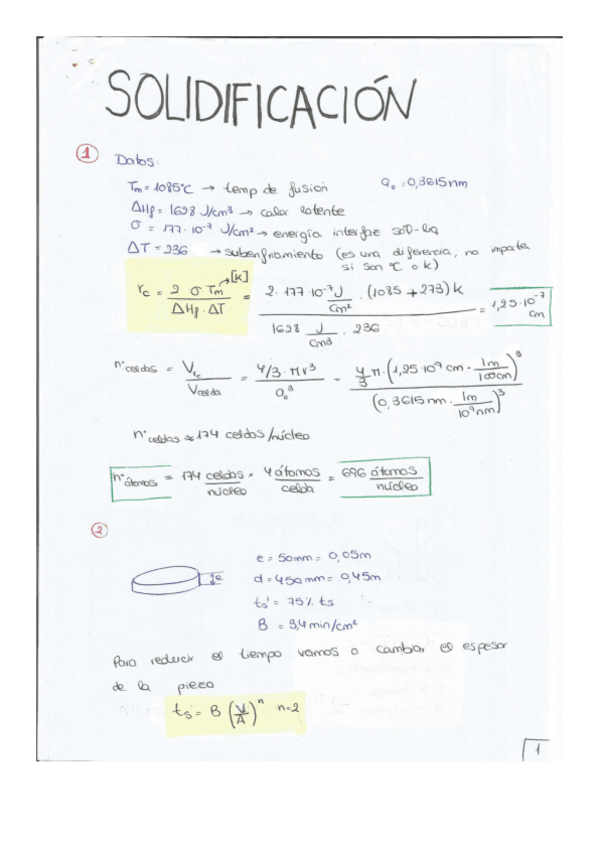 SOLIDIFICACIÓN
1 Datos:
Tm = 1085°C → temp de fusión a₀ = 0,3615nm
ΔHf = 1628 J/cm³ → calor latente
σ = 177·10⁻⁷ J/cm² → energía interfaz sol-liq
ΔT = 236 → subenfriamiento (es una diferencia, no importa
si son °C o K)
rc = 2 σ Tm → [K] / ΔHf · ΔT = 2 · 177·10⁻⁷ J/cm² · (1085 + 273) K / 1628 J/cm³ · 236 = 1,25·10⁻⁷ cm
n° celdas = Vrc / Vcelda = 4/3 · π r³ / a₀³ = 4/3 π · (1,25·10⁷ cm · 1m/100cm)³ / (0,3615nm · 1m/10⁹nm)³
n° celdas ≈ 174 celdas/núcleo
n° átomos = 174 celdas/núcleo × 4 átomos/celda = 696 átomos/núcleo
2
e
e = 50mm = 0,05m
d = 450mm = 0,45m
ts' = 75% ts
B = 3,4 min/cm²
Para reducir el tiempo vamos a cambiar el espesor
de la pieza
ts = B (V/A)ⁿ n=2
1